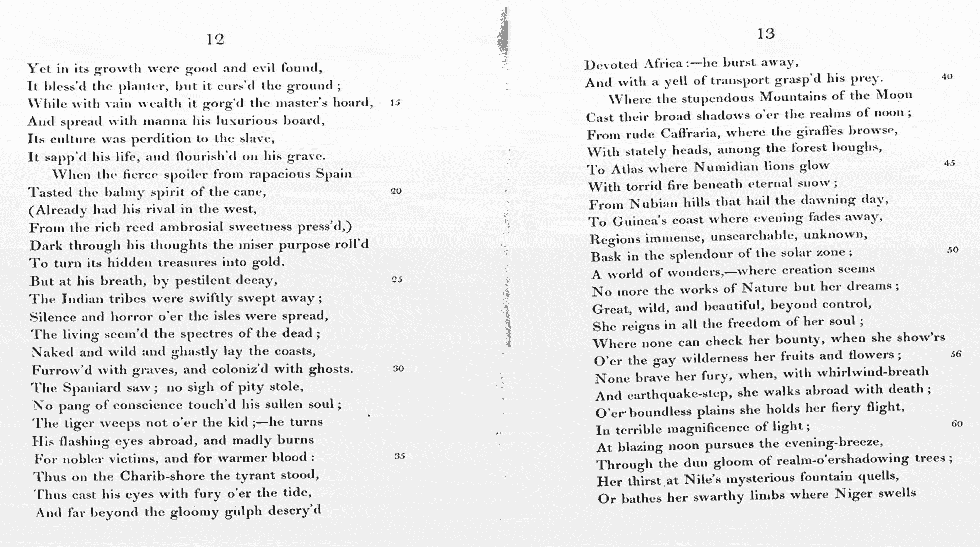 12
Yet in its growth were good and evil found,
It bless'd the planter, but it curs'd the ground ;
While with vain wealth it gorg'd the master's hoard, 15
And spread with manna his luxurious board,
Its culture was perdition to the slave,
It sapp'd his life, and flourish'd on his grave.
When the fierce spoiler from rapacious Spain
Tasted the balmy spirit of the cane, 20
(Already had his rival in the west,
From the rich reed ambrosial sweetness press'd,)
Dark through his thoughts the miser purpose roll'd
To turn its hidden treasures into gold.
But at his breath, by pestilent decay, 25
The Indian tribes were swiftly swept away ;
Silence and horror o'er the isles were spread,
The living seem'd the spectres of the dead ;
Naked and wild and ghastly lay the coasts,
Furrow'd with graves, and coloniz'd with ghosts. 30
The Spaniard saw ; no sigh of pity stole,
No pang of conscience touch'd his sullen soul ;
The tiger weeps not o'er the kid ;—he turns
His flashing eyes abroad, and madly burns
For nobler victims, and for warmer blood : 35
Thus on the Charib-shore the tyrant stood,
Thus cast his eyes with fury o'er the tide,
And far beyond the gloomy gulph descry'd
13
Devoted Africa :—he burst away,
And with a yell of transport grasp'd his prey. 40
Where the stupendous Mountains of the Moon
Cast their broad shadows o'er the realms of noon ;
From rude Caffraria, where the giraffes browse,
With stately heads, among the forest boughs,
To Atlas where Numidian lions glow 45
With torrid fire beneath eternal snow ;
From Nubian hills that hail the dawning day,
To Guinea's coast where evening fades away,
Regions immense, unsearchable, unknown,
Bask in the splendour of the solar zone ; 50
A world of wonders,—where creation seems
No more the works of Nature but her dreams ;
Great, wild, and beautiful, beyond control,
She reigns in all the freedom of her soul ;
Where none can check her bounty, when she show'rs
O'er the gay wilderness her fruits and flowers ; 56
None brave her fury, when, with whirlwind-breath
And earthquake-step, she walks abroad with death ;
O'er boundless plains she holds her fiery flight,
In terrible magnificence of light ; 60
At blazing noon pursues the evening-breeze,
Through the dun gloom of realm-o'ershadowing trees ;
Her thirst at Nile's mysterious fountain quells,
Or bathes her swarthy limbs where Niger swells